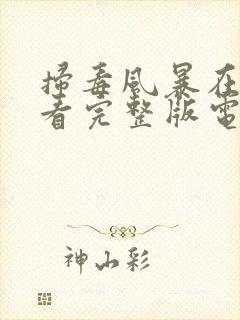 掃毒風暴在
看完整版電
神山彩